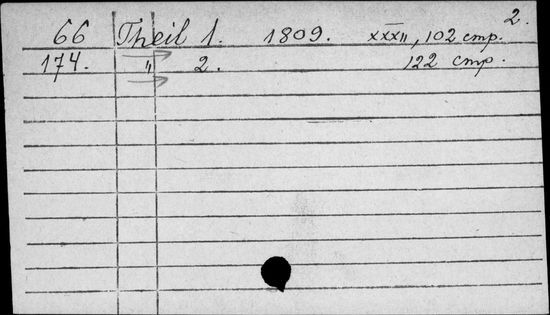 2.
66 Theil 1. 1809. XXXII, 102 стр.
174. " 2. 122 стр.